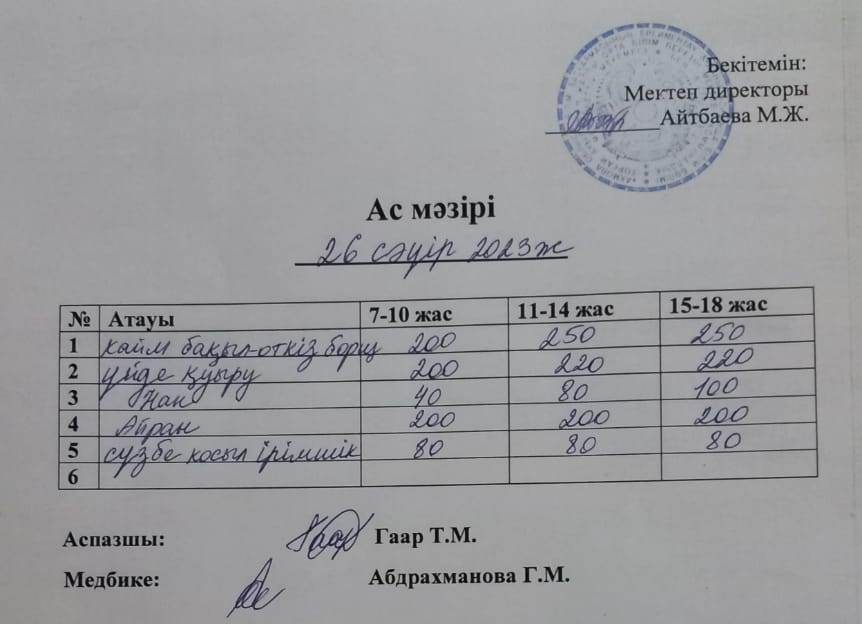 Бекітемін:
Мектеп директоры
Айтбаева М.Ж.
Ас мәзірі
26 сәуір 2023ж
№ Атауы 7-10 жас 11-14 жас 15-18 жас
1 қайм бақыл-откіз борщ 200 250 250
2 үйде қуыру 200 220 220
3 Нан 40 80 100
4 Айран 200 200 200
5 сүзбе косыл ірімшік 80 80 80
6
Аспазшы: Гаар Т.М.
Медбике: Абдрахманова Г.М.